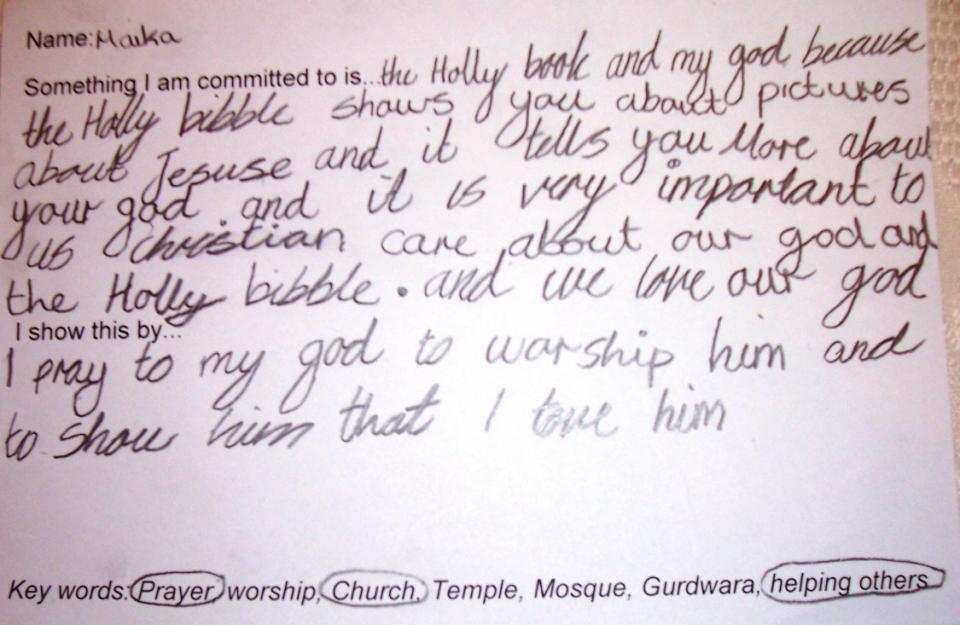 Name: Maika
Something I am committed to is...the Holly book and my god because
the Holly bibble shows you about pictures
about Jesuse and it tells you More about
your god. and it is very important to
us christian care about our god and
the Holly bibble. and we love our god
I show this by...
I pray to my god to worship him and
to show him that I love him
Key words: Prayer, worship, Church, Temple, Mosque, Gurdwara, helping others